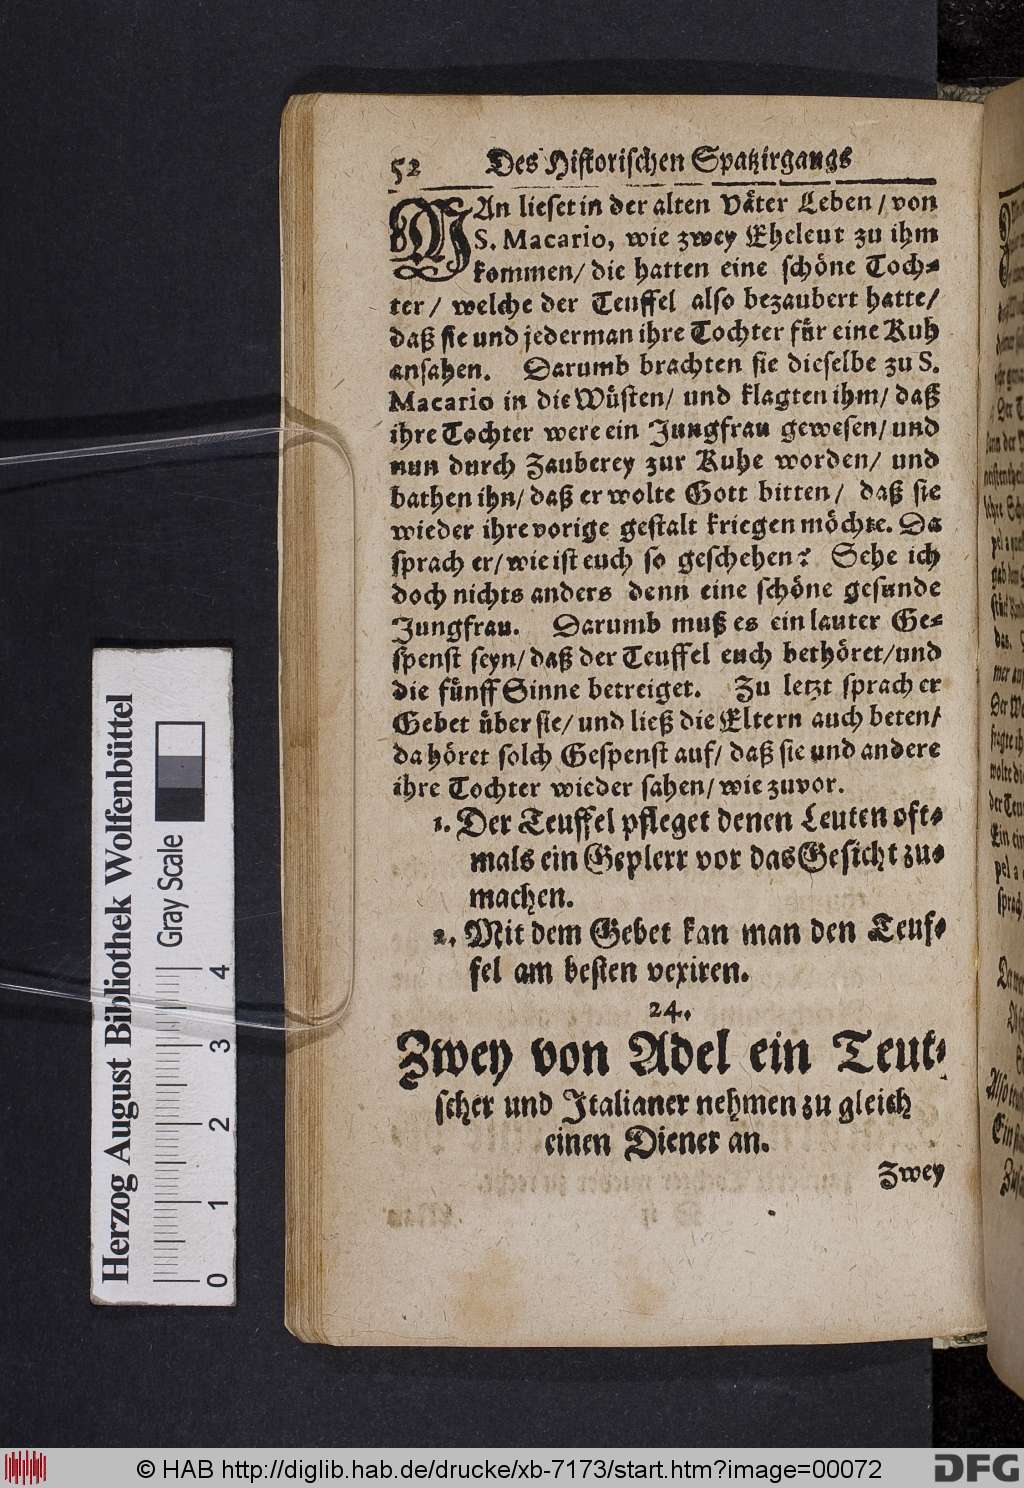 52 Des Historischen Spatzirgangs
MAn lieset in der alten Väter Leben / von
S. Macario, wie zwey Eheleut zu ihm
kommen / die hatten eine schöne Toch-
ter / welche der Teuffel also bezaubert hatte /
daß sie und jederman ihre Tochter für eine Kuh
ansahen. Darumb brachten sie dieselbe zu S.
Macario in die Wüsten / und klagten ihm / daß
ihre Tochter were ein Jungfrau gewesen / und
nun durch Zauberey zur Kuhe worden / und
bathen ihn / daß er wolte Gott bitten / daß sie
wieder ihre vorige gestalt kriegen möchte. Da
sprach er / wie ist euch so geschehen? Sehe ich
doch nichts anders denn eine schöne gesunde
Jungfrau. Darumb muß es ein lauter Ge-
spenst seyn / daß der Teuffel euch bethöret / und
die fünff Sinne betreiget. Zu letzt sprach er
Gebet über sie / und ließ die Eltern auch beten /
da höret solch Gespenst auf / daß sie und andere
ihre Tochter wieder sahen / wie zuvor.
1. Der Teuffel pfleget denen Leuten oft-
mals ein Geplerr vor das Gesicht zu-
machen.
2. Mit dem Gebet kan man den Teuf-
fel am besten vexiren.
24.
Zwey von Adel ein Teut-
scher und Italianer nehmen zu gleich
einen Diener an.
Zwey
Herzog August Bibliothek Wolfenbüttel
Gray Scale
0 1 2 3 4
© HAB http://diglib.hab.de/drucke/xb-7173/start.htm?image=00072
DFG